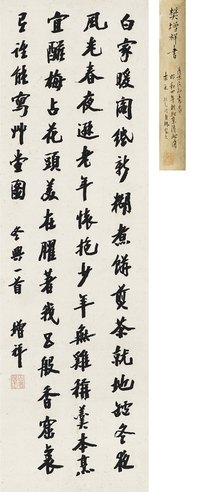 樊增祥書
白家暖閣紙新糊煮餅煎茶就地爐冬夜
風光春夜遜老年懷抱少年無雞稱羹本烹
宜醢梅占花頭美在臞著我般香窟裏
能寫艸堂圖 冬興一首 增祥